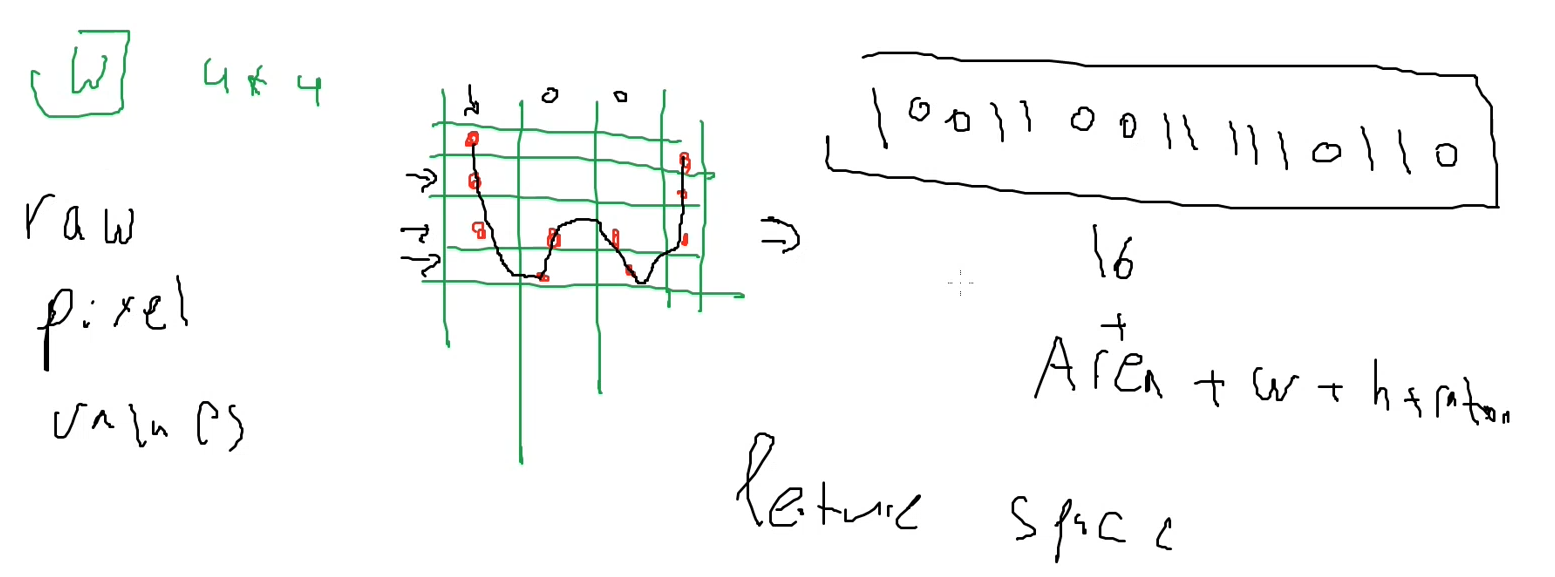 W 4 * 4
↓ 0 0
raw
pixel
values
⇒
1 0 0 1 1 0 0 1 1 1 1 1 0 1 1 0
16
+
Area + w + h +
feature space